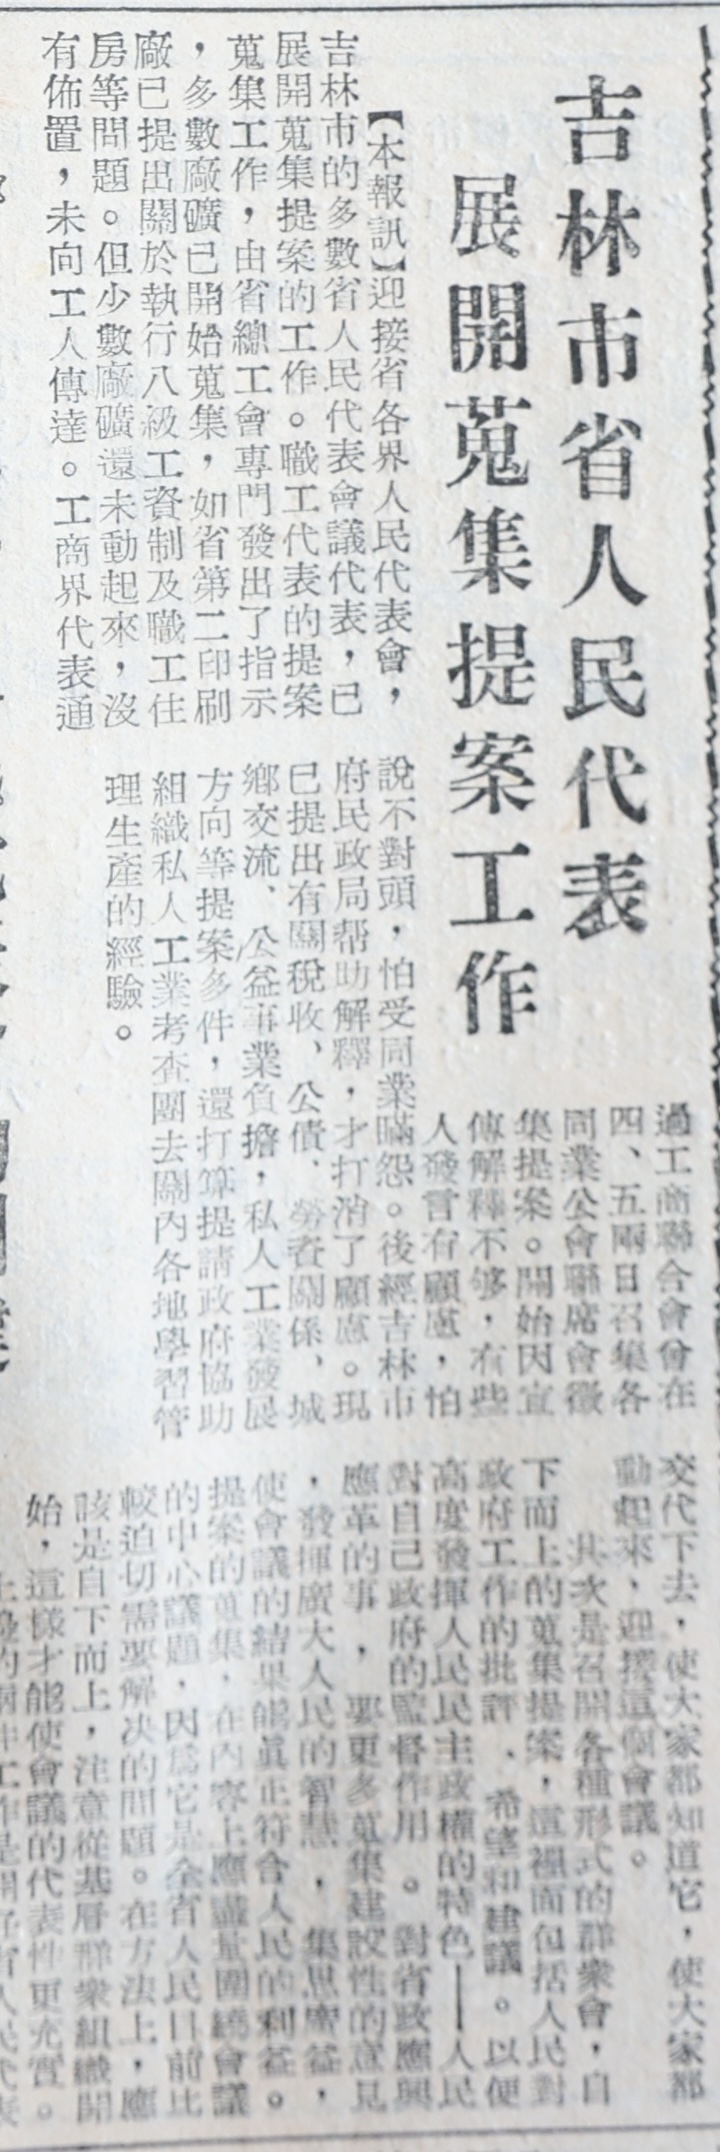 吉林市省人民代表
展開蒐集提案工作
【本報訊】迎接省各界人民代表會，
吉林市的多數省人民代表會議代表，已
展開蒐集提案的工作。職工代表的提案
蒐集工作，由省總工會專門發出了指示
，多數廠礦已開始蒐集，如省第二印刷
廠已提出關於執行八級工資制及職工住
房等問題。但少數廠礦還未動起來，沒
有佈置，未向工人傳達。工商界代表通
過工商聯合會曾在
四、五兩日召集各
同業公會聯席會徵
集提案。開始因宣
傳解釋不够，有些
人發言有顧慮，怕
說不對頭，怕受同業瞞怨。後經吉林市
府民政局帮助解釋，才打消了顧慮。現
已提出有關稅收、公債、勞資關係、城
鄉交流、公益事業負擔，私人工業發展
方向等提案多件，還打算提請政府協助
組織私人工業考查團去關內各地學習管
理生產的經驗。
交代下去，使大家都知道它，使大家都
動起來，迎接這個會議。
其次是召開各種形式的群衆會，自
下而上的蒐集提案，這裡面包括人民對
政府工作的批評、希望和建議。以便
高度發揮人民民主政權的特色——人民
對自己政府的監督作用。對省政應興
應革的事，要更多蒐集建設性的意見
，發揮廣大人民的智慧，集思廣益，
使會議的結果能眞正符合人民的利益。
提案的蒐集，在內容上應盡量圍繞會議
的中心議題，因爲它是全省人民目前比
較迫切需要解決的問題。在方法上，應
該是自下而上，注意從基層群衆組織開
始，這樣才能使會議的代表性更充實。